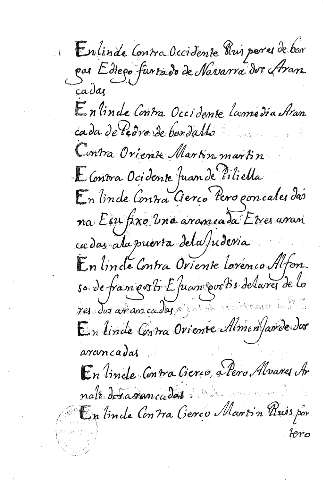 Enlinde Contra Occidente Ruiperes de bor
gos Ediego furtado de Navarra dos Aran
cadas
Enlinde Contra Occidente lamedia Aran
cada de Pedro de bordallo
Contra Oriente Martin martin
E Contra Ocidente Juan de Piliella
En linde Contra Cierco Pero goncales das
na Esu fixo una arancada Etres aran
cadas ala puerta dela Juderia
En linde Contra Oriente Lorenco Alfon
so de frangosti E Juangostis delares de lo
res dos arancadas
En linde Contra Oriente Almonjar de dos
arancadas
En linde Contra Cierco, a Pero Alvares Ar
nalt dos arancadas
En linde Contra Cierco Martin Ruis por
tero